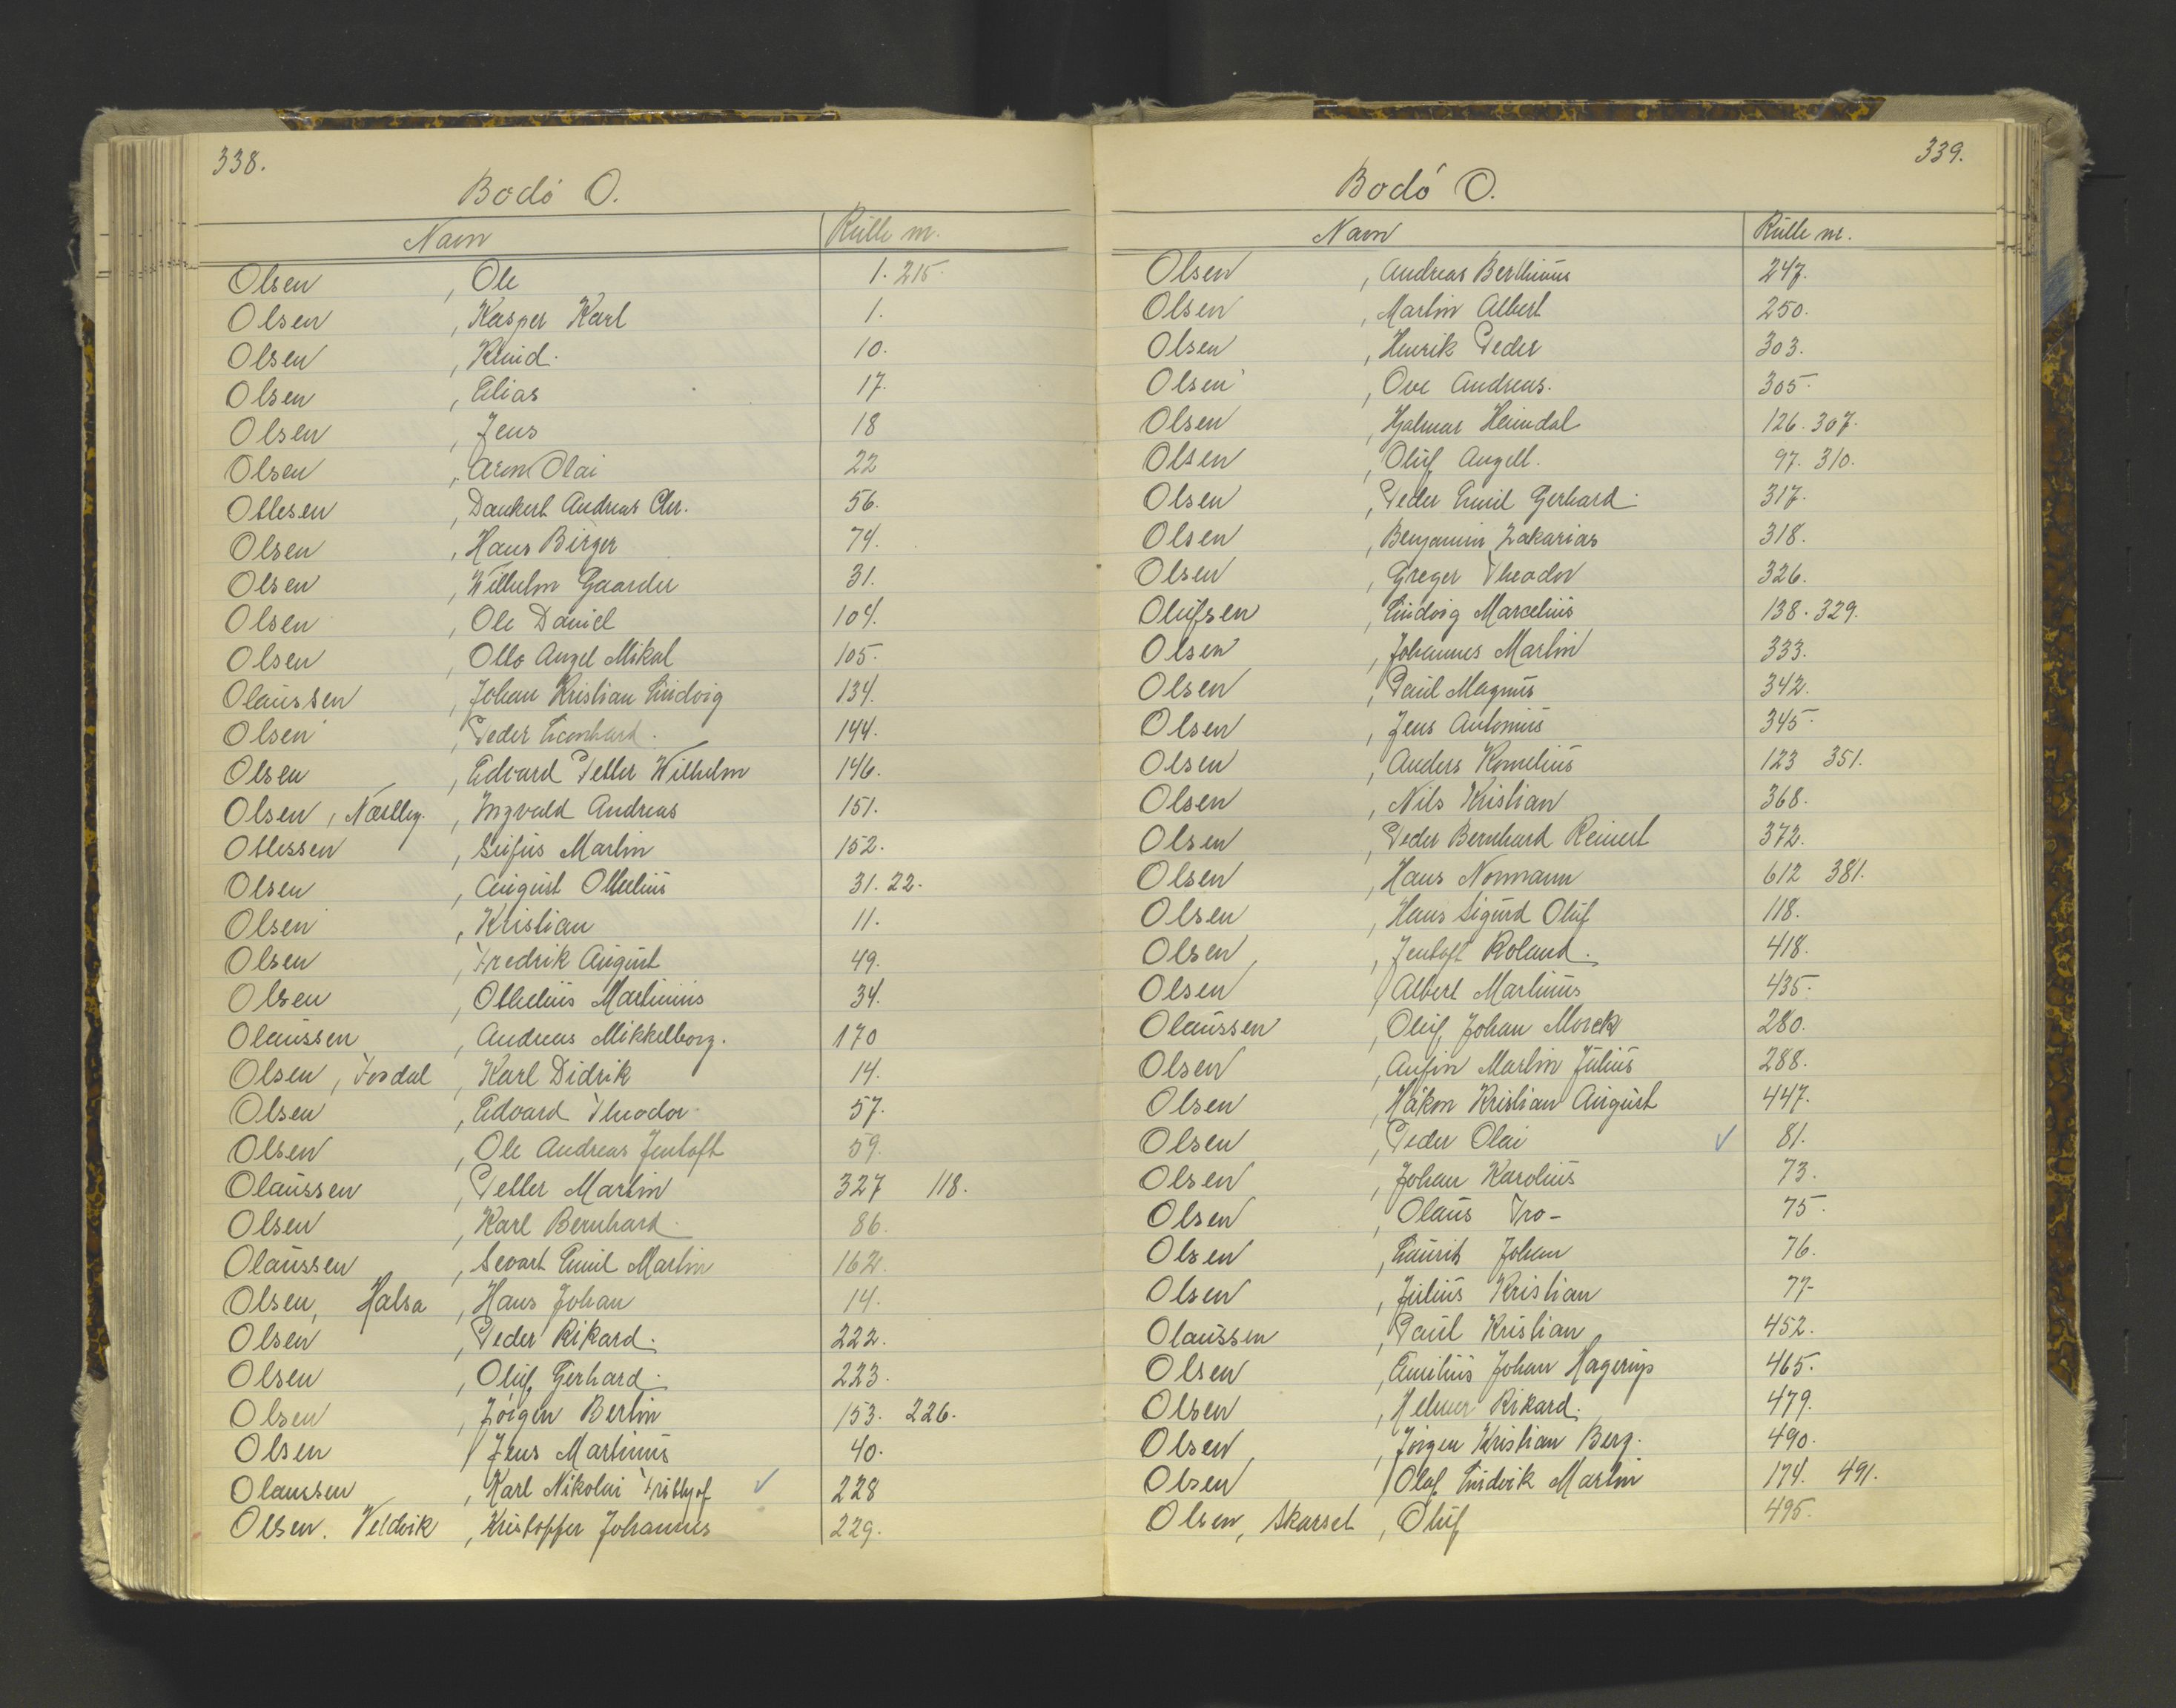 338.
Bodó O.
Navn Rulle nr.
Olsen , Ole 1. 215.
Olsen , Kasper Karl 1.
Olsen , Knud. 10.
Olsen , Elias 17.
Olsen , Jens 18
Olsen , Aron Olai 22
Ottesen , Dankert Andreas Chr. 56.
Olsen , Hans Birger 74.
Olsen , Wilhelm Gaarder 31.
Olsen , Ole Daniel 104.
Olsen , Otto Angel Mikal 105.
Olaussen , Johan Kristian Ludvig 134.
Olsen , Peder Leonhard. 144.
Olsen , Edvard Petter Wilhelm 146.
Olsen, Næstby. , Ingvald Andreas 151.
Ottessen , Sigfus Martin 152.
Olsen , August Othelius 31. 22.
Olsen , Kristian 11.
Olsen , Fredrik August 49.
Olsen , Othelius Martinius 34.
Olaussen , Andreas Mikkelborg. 170
Olsen, Fosdal , Karl Didrik 14.
Olsen , Edvard Theodor 57.
Olsen , Ole Andreas Jentoft 59.
Olaussen , Petter Martin 327 118.
Olsen , Karl Bernhard. 86.
Olaussen , Sevart Emil Martin 162.
Olsen, Halsa , Hans Johan 14.
Olsen , Peder Rikard. 222.
Olsen , Oluf Gerhard. 223.
Olsen , Jörgen Bertin 153. 226.
Olsen , Jens Martinus 40.
Olaussen , Karl Nikolai Frithjof ✓ 228
Olsen. Veldvik , Kristoffer Johannes 229.
339.
Bodó O.
Navn Rulle nr.
Olsen , Andreas Berthinus 247.
Olsen , Martin Albert 250.
Olsen , Henrik Peder 303.
Olsen , Ove Andreas. 305.
Olsen , Hjalmar Heimdal 126. 307.
Olsen , Oluf Angell. 97. 310.
Olsen , Peder Emil Gerhard. 317.
Olsen , Benjamin Zakarias 318.
Olsen , Greger Theodor 326.
Olufsen , Ludvig Marcelius 138. 329.
Olsen , Johannes Martin 333.
Olsen , Paul Magnus 342.
Olsen , Jens Antonius 345.
Olsen , Anders Kornelius 123 351.
Olsen , Nils Kristian 368.
Olsen , Peder Bernhard Reinert 372.
Olsen , Hans Normann 612 381.
Olsen , Hans Sigurd Oluf 118.
Olsen , Jentoft Roland. 418.
Olsen , Albert Martinus 435.
Olaussen , Oluf Johan Morck 280.
Olsen , Anfin Martin Julius 288.
Olsen , Håkon Kristian August 447.
Olsen , Peder Olai ✓ 81.
Olsen , Johan Karolius 73.
Olsen , Olaus Tro- 75.
Olsen , Laurits Johan 76.
Olsen , Julius Kristian 77-
Olaussen , Paul Kristian 452.
Olsen , Emilius Johan Hagerup 465.
Olsen , Helmer Rikard. 479.
Olsen , Jörgen Kristian Berg. 490.
Olsen , Olaf Ludvik Martin 174. 491.
Olsen, Skarset , Oluf 495.